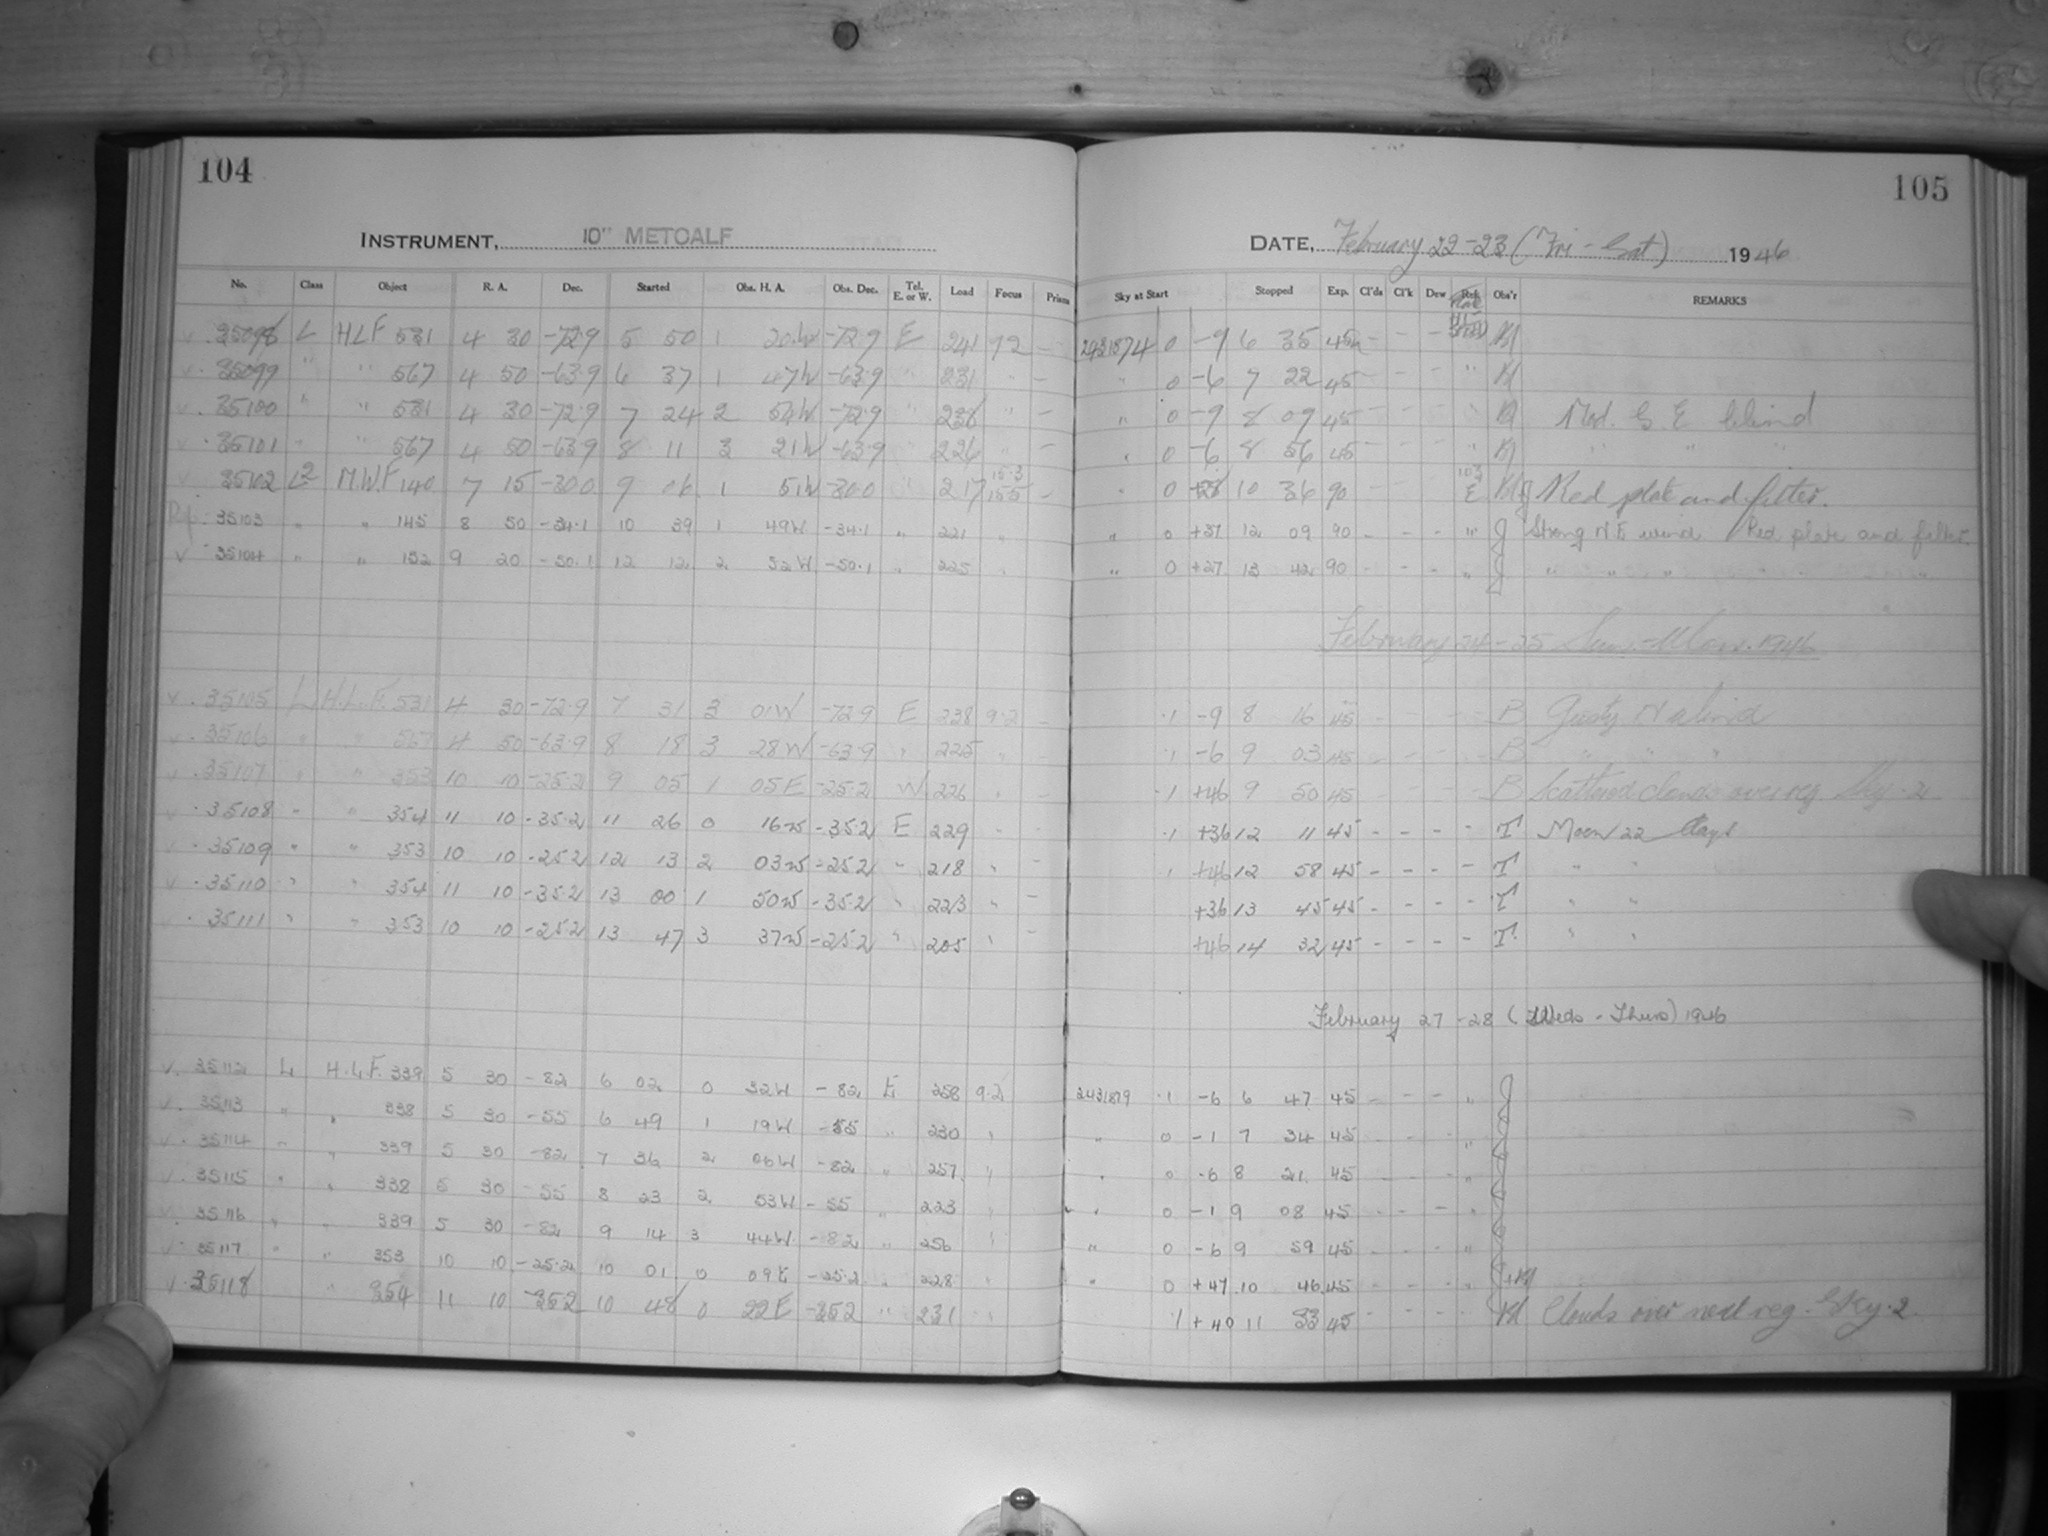 104
105
INSTRUMENT, 10" METCALF
DATE, February 22-23 (Fri - Sat) 1946
No. Class Object R. A. Dec. Started Obs. H. A. Obs. Dec. Tel. E. or W. Load Focus Prism Sky at Start Stopped Exp. Cl'ds Cl'k Dew Obs'r REMARKS
35098 L HLF 531 4 30 -72.9 5 50 1 20W -72.9 E 241 92 - 0 -9 6 35 45 - - - Bl
35099 " " 567 4 50 -63.9 6 37 1 47W -63.9 " 231 " - " 0 -6 7 22 45 - - - " Bl
35100 " " 531 4 30 -72.9 7 24 2 54W -72.9 " 236 " - " 0 -9 8 09 45 - - - " Bl Mod. S. E. Wind
35101 " " 567 4 50 -63.9 8 11 3 21W -63.9 " 226 " - " 0 -6 8 56 45 - - - " Bl " " "
35102 M.W.F 140 7 15 -30.0 9 06 1 51W -30.0 " 217 - " 0 10 36 90 - - - 103 E Red plate and filter.
35103 " " 145 8 50 -34.1 10 39 1 49W -34.1 " 221 " " 0 +37 12 09 90 - - - " J Strong N E wind Red plate and filter.
35104 " " 152 9 20 -50.1 12 12 2 52W -50.1 " 225 " " 0 +27 13 42 90 - - - " J " " " " " "
February 24-25 Sun.-Mon. 1946
35105 L H.L.F. 531 4 30 -72.9 7 31 3 01W -72.9 E 238 9.2 - .1 -9 8 16 45 - - - - B Gusty N Wind
35106 " " 567 4 50 -63.9 8 18 3 28W -63.9 " 225 " - .1 -6 9 03 45 - - - - B " " "
35107 " " 353 10 10 -25.2 9 05 1 05E -25.2 W 226 " - .1 +46 9 50 45 - - - - B Scattered clouds over reg. Sky .2
35108 " " 354 11 10 -35.2 11 26 0 16W -35.2 E 229 " - .1 +36 12 11 45 - - - - T Moon 22 days
35109 " " 353 10 10 -25.2 12 13 2 03W -25.2 " 218 " - +46 12 58 45 - - - - T " "
35110 " " 354 11 10 -35.2 13 00 1 50W -35.2 " 223 " - +36 13 45 45 - - - - T " "
35111 " " 353 10 10 -25.2 13 47 3 37W -25.2 " 205 " - +46 14 32 45 - - - - T. " "
February 27-28 (Weds - Thurs) 1946
35112 L H.L.F. 339 5 30 -82 6 02 0 32W -82 E 258 9.2 2431879 .1 -6 6 47 45 - - - " J
35113 " " 338 5 30 -55 6 49 1 19W -55 " 230 " " 0 -1 7 34 45 - - - "
35114 " " 339 5 30 -82 7 36 2 06W -82 " 257 " " 0 -6 8 21 45 - - - "
35115 " " 338 5 30 -55 8 23 2 53W -55 " 223 " " 0 -1 9 08 45 - - - "
35116 " " 339 5 30 -82 9 14 3 44W -82 " 256 " " 0 -6 9 59 45 - - - "
35117 " " 353 10 10 -25.2 10 01 0 09E -25.2 " 228 " " 0 +47 10 46 45 - - - "
35118 " 354 11 10 -35.2 10 48 0 22E -35.2 " 231 " .1 +40 11 33 45 - - - - Bl Clouds over next reg. Sky .2